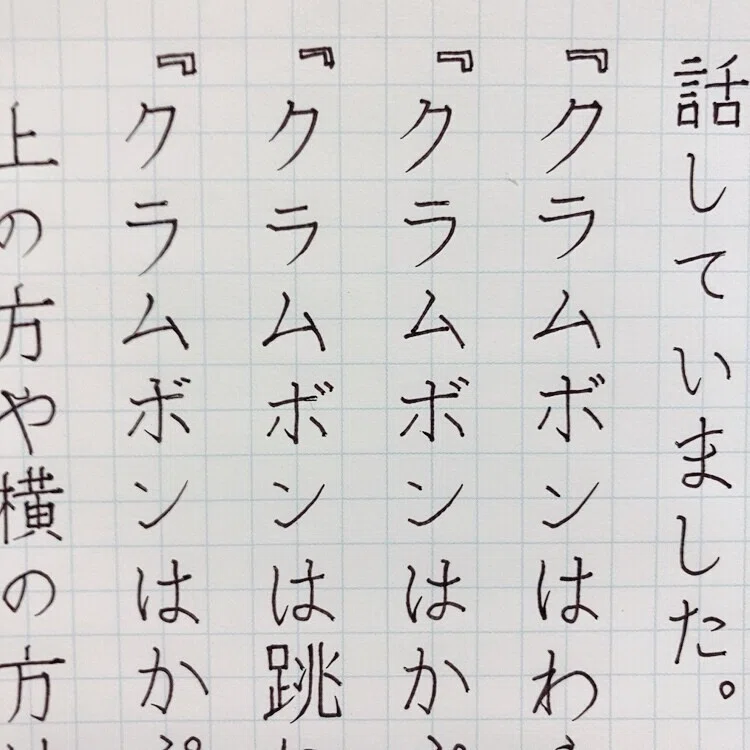 話していました。
『クラムボンはわ
『クラムボンはか
『クラムボンは跳
『クラムボンはかぷ
上の方や横の方